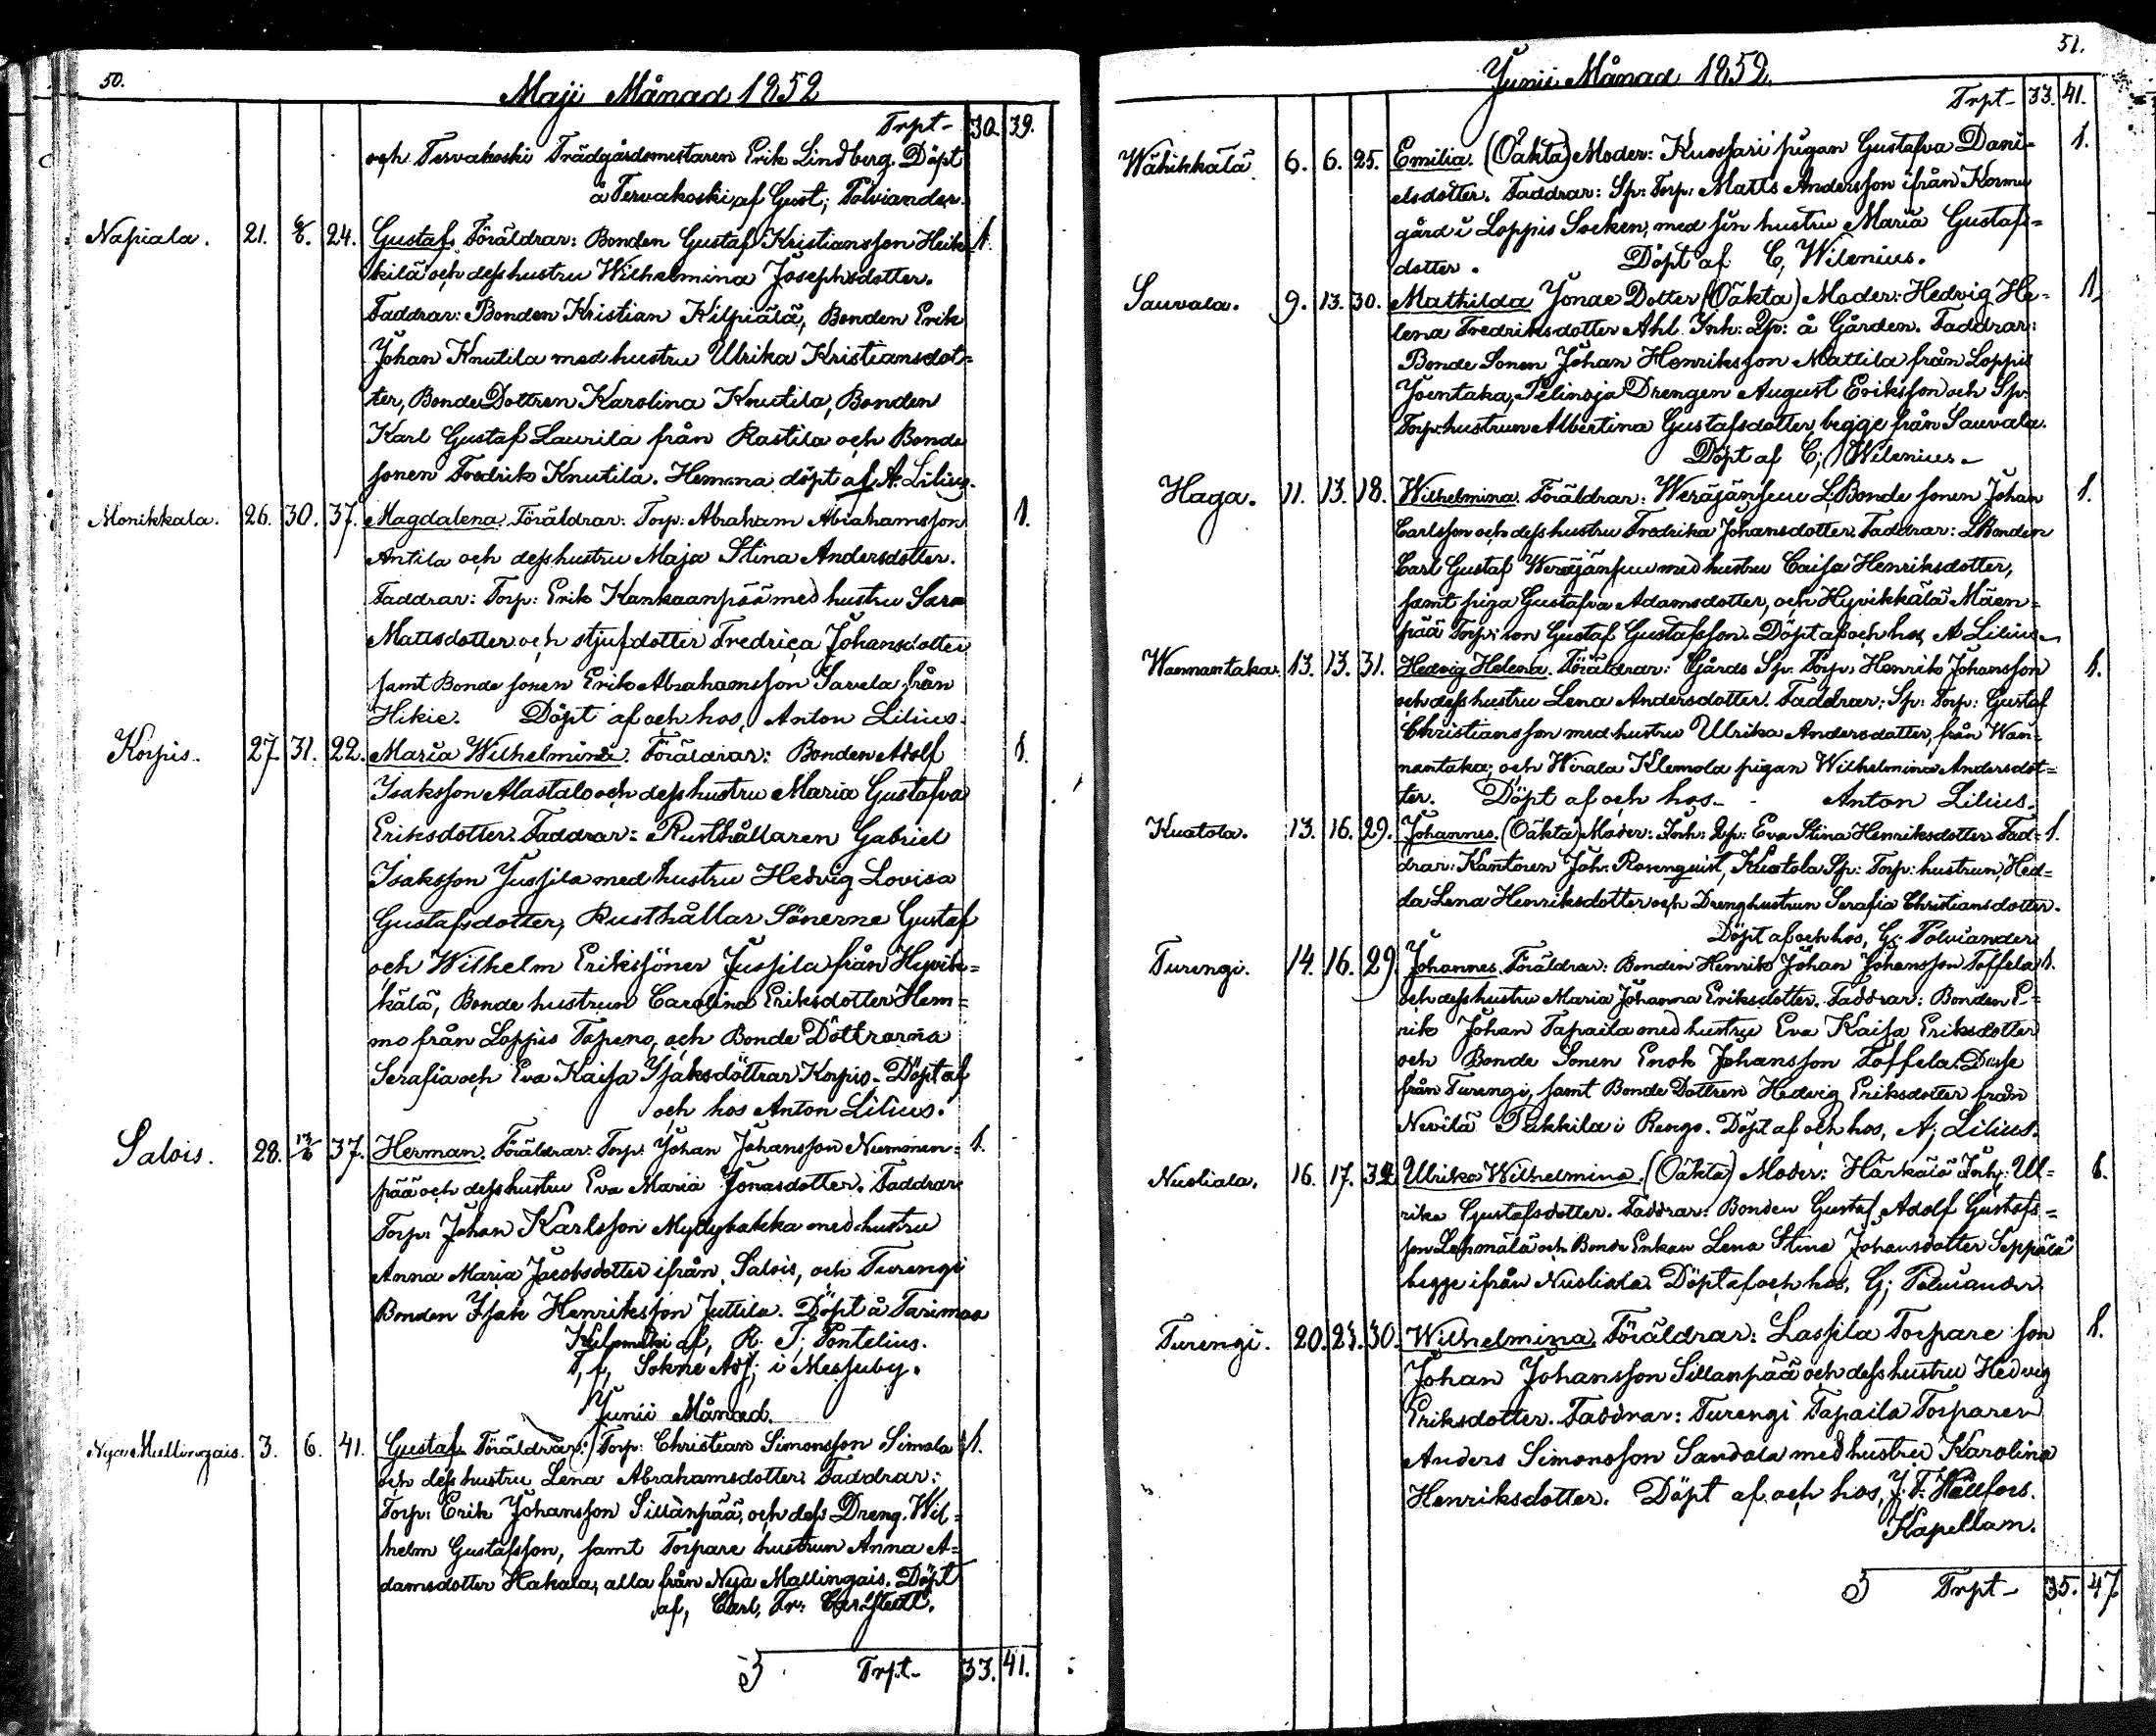 50.
Maji Månad 1852
Trpt- 30. 39.
och Tervakoski Trädgårdsmestaren Erik Lindberg. Döpt
å Tervakoski, af Gust; Polviander.
Napiala. 21. 24. Gustaf. Föräldrar: Bonden Gustaf Kristiansson Heik- 1.
kilä och dess hustru Wilhelmina Josephsdotter.
Faddrar: Bonden Kristian Kilpiälä, Bonden Erik
Johan Knutila med hustru Ulrika Kristiansdot=
ter, Bonde Dottren Karolina Knutila, Bonden
Karl Gustaf Laurila från Rastila och Bonde
sonen Fredrik Knutila. Hemma döpt af A. Lilius.
Monikkala. 26. 30. 37. Magdalena. Föräldrar: Torp: Abraham Abrahamsson 1.
Antila och dess hustru Maja Stina Andersdotter.
Faddrar: Torp: Erik Kankaanpää med hustru Sara
Mattsdotter och stjufdotter Fredrica Johansdotter
samt Bonde sonen Erik Abrahamsson Savela från
Hikie. Döpt af och hos, Anton Lilius.
Korpis. 27. 31. 22. Maria Wilhelmina. Föräldrar: Bonden Adolf 1.
Isaksson Alastalo och dess hustru Maria Gustafva
Eriksdotter. Faddrar: Rusthållaren Gabriel
Isaksson Jussila med hustru Hedvig Lovisa
Gustafsdotter, Rusthållar Sönerne Gustaf
och Wilhelm Erikssöner Jussila från Hyvik=
kälä, Bonde hustrun Carolina Eriksdotter Hem=
mo från Loppis Topeno, och Bonde Döttrarna
Serafia och Eva Kaisa Isaksdöttrar Korpis. Döpt af
och hos Anton Lilius.
Salois. 28. 37. Herman. Föräldrar: Torp: Johan Johansson Nummen= 1.
pää och dess hustru Eva Maria Jonasdotter. Faddrar:
Torp: Johan Karlsson Myllykakka med hustru
Anna Maria Jacobsdotter ifrån Salois, och Turengi
Bonden Isak Henriksson Juttila. Döpt å Tarimaa
af, R. T; Pontelius.
T, f, Sokne Adj; i Messuby.
Junii Månad.
Nya Mallingais. 3. 6. 41. Gustaf. Föräldrar: Torp: Christian Simonsson Simola 1.
och dess hustru Lena Abrahamsdotter. Faddrar:
Torp: Erik Johansson Sillanpää, och dess Dreng. Wil=
helm Gustafsson, samt Torpare hustrun Anna A=
damsdotter Hakala, alla från Nya Mallingais. Döpt
af, Carl, Fr: Carlstedt.
Trpt- 33. 41.
51.
Junii Månad 1852.
Trpt- 33. 41.
Wähikkälä 6. 6. 25. Emilia. (Oäkta) Moder: Kuossari pigan Gustafva Dani= 1.
elsdotter. Faddrar: Sp: Torp: Matts Andersson ifrån Kormu
gård i Loppis Socken, med sin hustru Maria Gustafs=
dotter. Döpt af C, Wilenius.
Sauvala. 9. 13. 30. Mathilda Jonae Dotter (Oäkta) Moder: Hedvig He= 1.
lena Fredriksdotter Ahl. Inh: Qp: å Gården. Faddrar:
Bonde Sonen Johan Henriksson Mattila från Loppis
Joentaka, Pelinoja Drengen August Eriksson och Sp:
Torp: hustrun Albertina Gustafsdotter, begge från Sauvala.
Döpt af C; Wilenius.
Haga. 11. 13. 18. Wilhelmina. Föräldrar: Weräjänsuu L. Bonde sonen Johan 1.
Carlsson och dess hustru Fredrika Johansdotter. Faddrar: L. Bonden
Carl Gustaf Weräjänsuu med hustru Caisa Henriksdotter,
samt piga Gustafva Adamsdotter, och Hyvikkälä Mäen=
pää Torp: son Gustaf Gustafsson. Döpt af och hos, A. Lilius.
Wannantaka. 13. 13. 31. Hedvig Helena. Föräldrar: Gårds Sp: Torp: Henrik Johansson 1.
och dess hustru Lena Andersdotter. Faddrar: Sp: Torp: Gustaf
Christiansson med hustru Ulrika Andersdotter, från Wan=
nantaka; och Wirala Klemola pigan Wilhelmina Andersdot=
ter. Döpt af och hos- Anton Lilius.
Kuotola. 13. 16. 29. Johannes. (Oäkta) Moder: Inh: Qp: Eva Stina Henriksdotter. Fad= 1.
drar: Kantoren Joh. Rosenquist, Kuotola Sp: Torp: hustrun, Hed=
da Lena Henriksdotter och Drenghustrun Serafia Christiansdotter.
Döpt af och hos, G; Polviander
Turengi. 14. 16. 29. Johannes. Föräldrar: Bonden Henrik Johan Johansson Toffela 1.
och dess hustru Maria Johanna Eriksdotter. Faddrar: Bonden E=
rik Johan Tapaila med hustru Eva Kaisa Eriksdotter
och Bonde Sonen Enok Johansson Toffela. Desse
från Turengi, samt Bonde Dottren Hedvig Eriksdotter från
Nevilä Pukkila i Rengo. Döpt af och hos, A; Lilius.
Nuoliala. 16. 17. 34. Ulrika Wilhelmina. (Oäkta) Moder: Harkälä Inh: Ul= 1.
rika Gustafsdotter. Faddrar: Bonden Gustaf Adolf Gustafs=
son Lehmälä och Bonde Enkan Lena Stina Johansdotter Seppälä
begge ifrån Nuoliala. Döpt af och hos, G; Polviander.
Turengi. 20. 23. 30. Wilhelmina. Föräldrar: Lassila Torpare son 1.
Johan Johansson Sillanpää och dess hustru Hedvig
Eriksdotter. Faddrar: Turengi Tapaila Torparen
Anders Simonsson Sandala med hustru Karolina
Henriksdotter. Döpt af och hos, J. F. Hällfors.
Kapellan.
Trpt- 35. 47